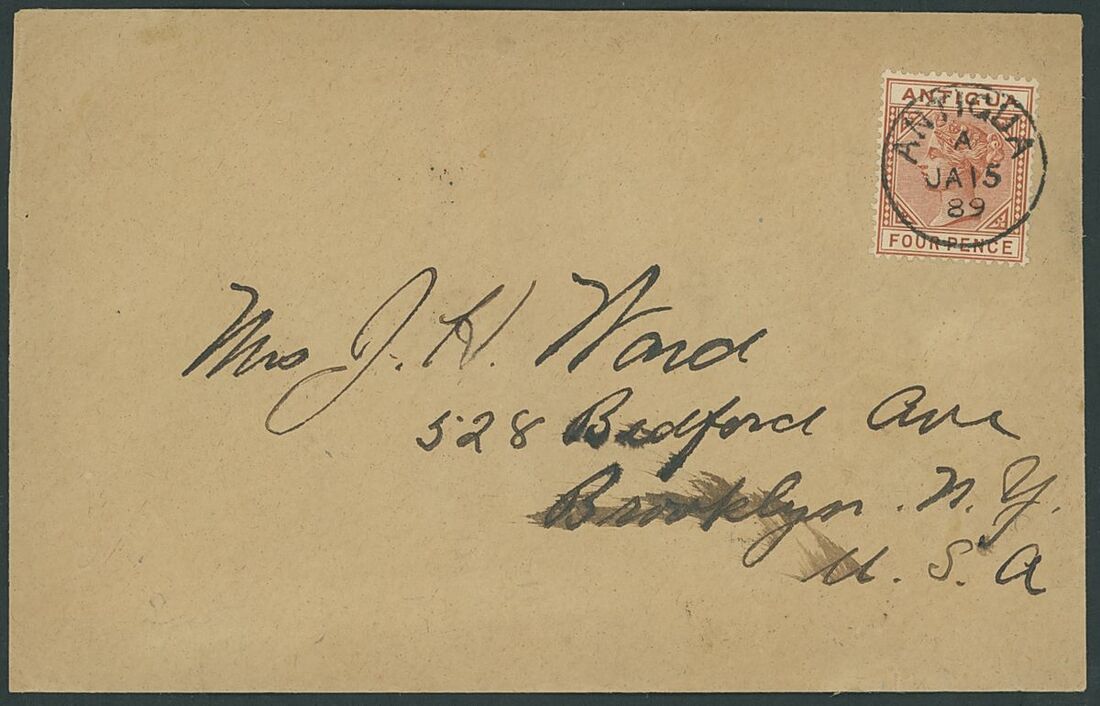 ANTIGUA
ANTIGUA
A
JA15
89
FOUR PENCE
Mrs J. H. Ward
528 Bedford Ave
Brooklyn. N. Y.
U. S. A